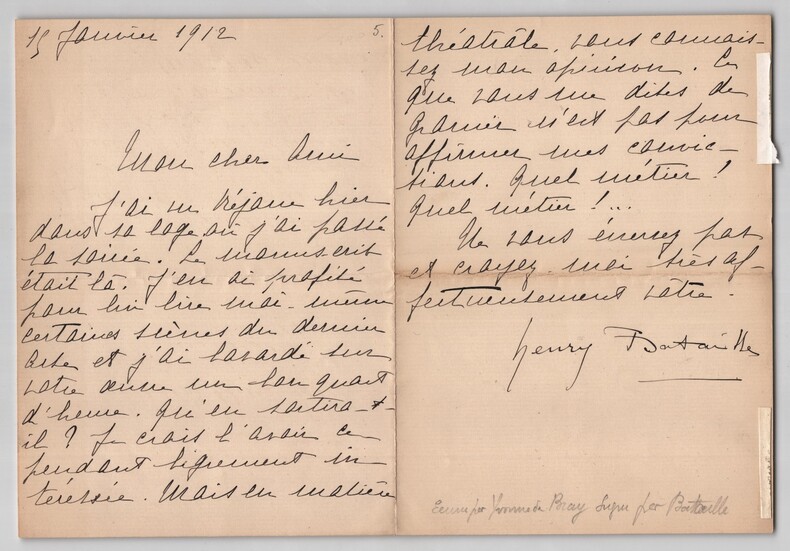 15 Janvier 1912
5.
Mon cher Ami
J'ai vu Réjane hier
dans sa loge où j'ai passé
la soirée. Le manuscrit
était là. J'en ai profité
pour lui lire moi-même
certaines scènes du dernier
acte et j'ai bavardé sur
votre œuvre un bon quart
d'heure. Qu'en sortira-t-
il ? Je crois l'avoir ce-
pendant bigrement in-
téréssée. Mais en matière
théâtrâle, vous connais-
sez mon opinion. Ce
que vous me dites de
Granier n'est pas pour
affirmer mes convic-
tions. Quel métier !
Quel métier !...
Ne vous énervez pas
et croyez-moi très af-
fectueusement vôtre.
Henry Bataille
Ecrit par Yvonne de Bray Signé par Bataille